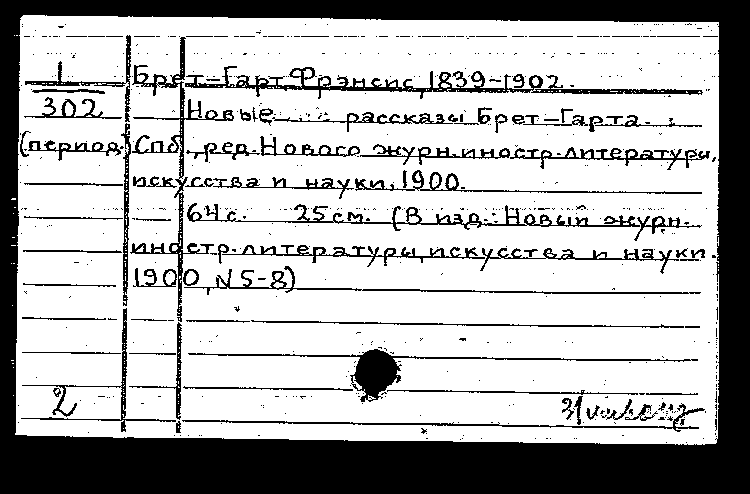 1 Брет-Гарт, Фрэнсис, 1839-1902.
302 Новые рассказы Брет-Гарта.
(период.) Спб., ред. Нового журн. иностр. литературы,
искусства и науки, 1900.
64 с. 25 см. (В изд.: Новый журн.
иностр. литературы, искусства и науки.
1900, N 5-8)
2